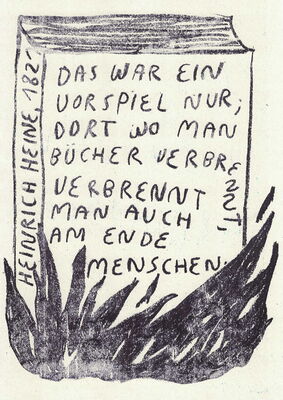 DAS WAR EIN
VORSPIEL NUR;
DORT WO MAN
BÜCHER VERBRENNT,
VERBRENNT
MAN AUCH
AM ENDE
MENSCHEN.
HEINRICH HEINE, 182